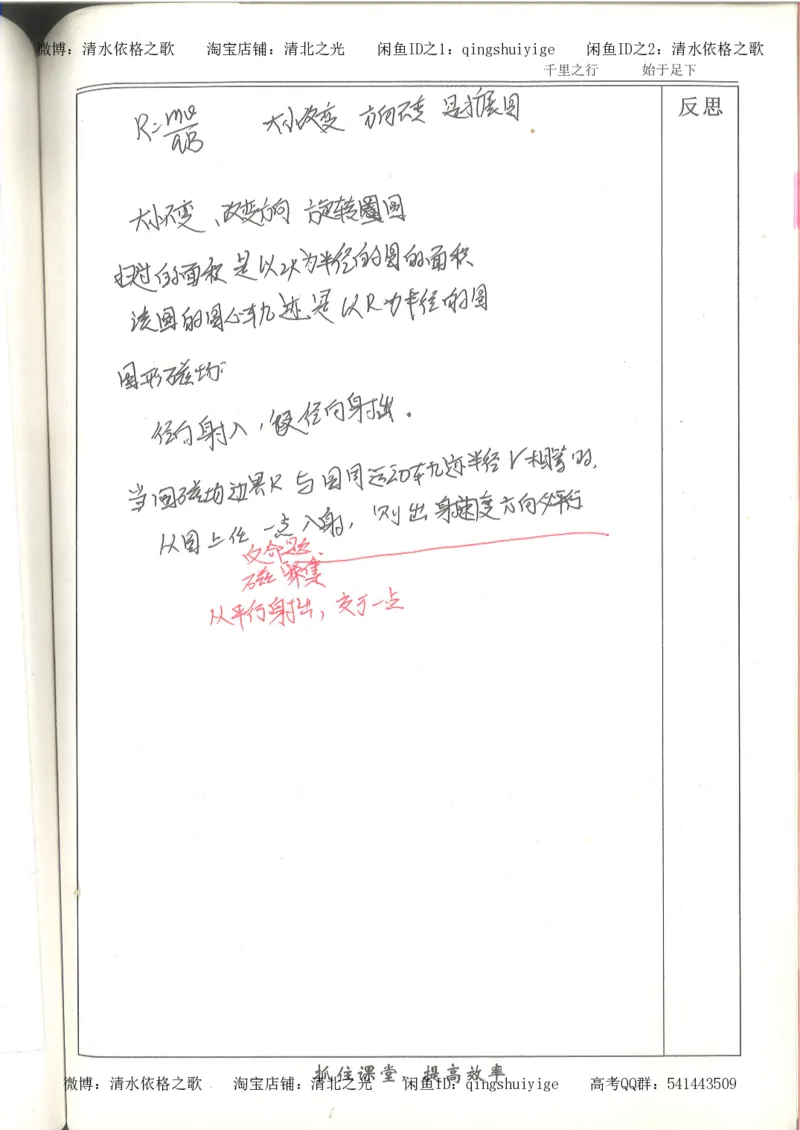 微博：清水依格之歌 淘宝店铺：清北之光 闲鱼ID之1：qingshuiyige 闲鱼ID之2：清水依格之歌
千里之行 始于足下
反思
R=mv/qB 大小改变 方向不变 是扩展圆
大小不变、改变方向 旋转圈圆
扫过的面积是以2R为半径的圆的面积
该圆的圆心轨迹是以R为半径的圆
圆形磁场:
径向射入，必径向射出。
当圆磁场边界R与圆周运动轨迹半径r相等时，
从圆上任一点入射，则出射速度方向必平行
反命题.
磁聚集
从平行射出，交于一点
抓住课堂、提高效率
微博：清水依格之歌 淘宝店铺：清北之光 闲鱼ID：qingshuiyige 高考QQ群：541443509